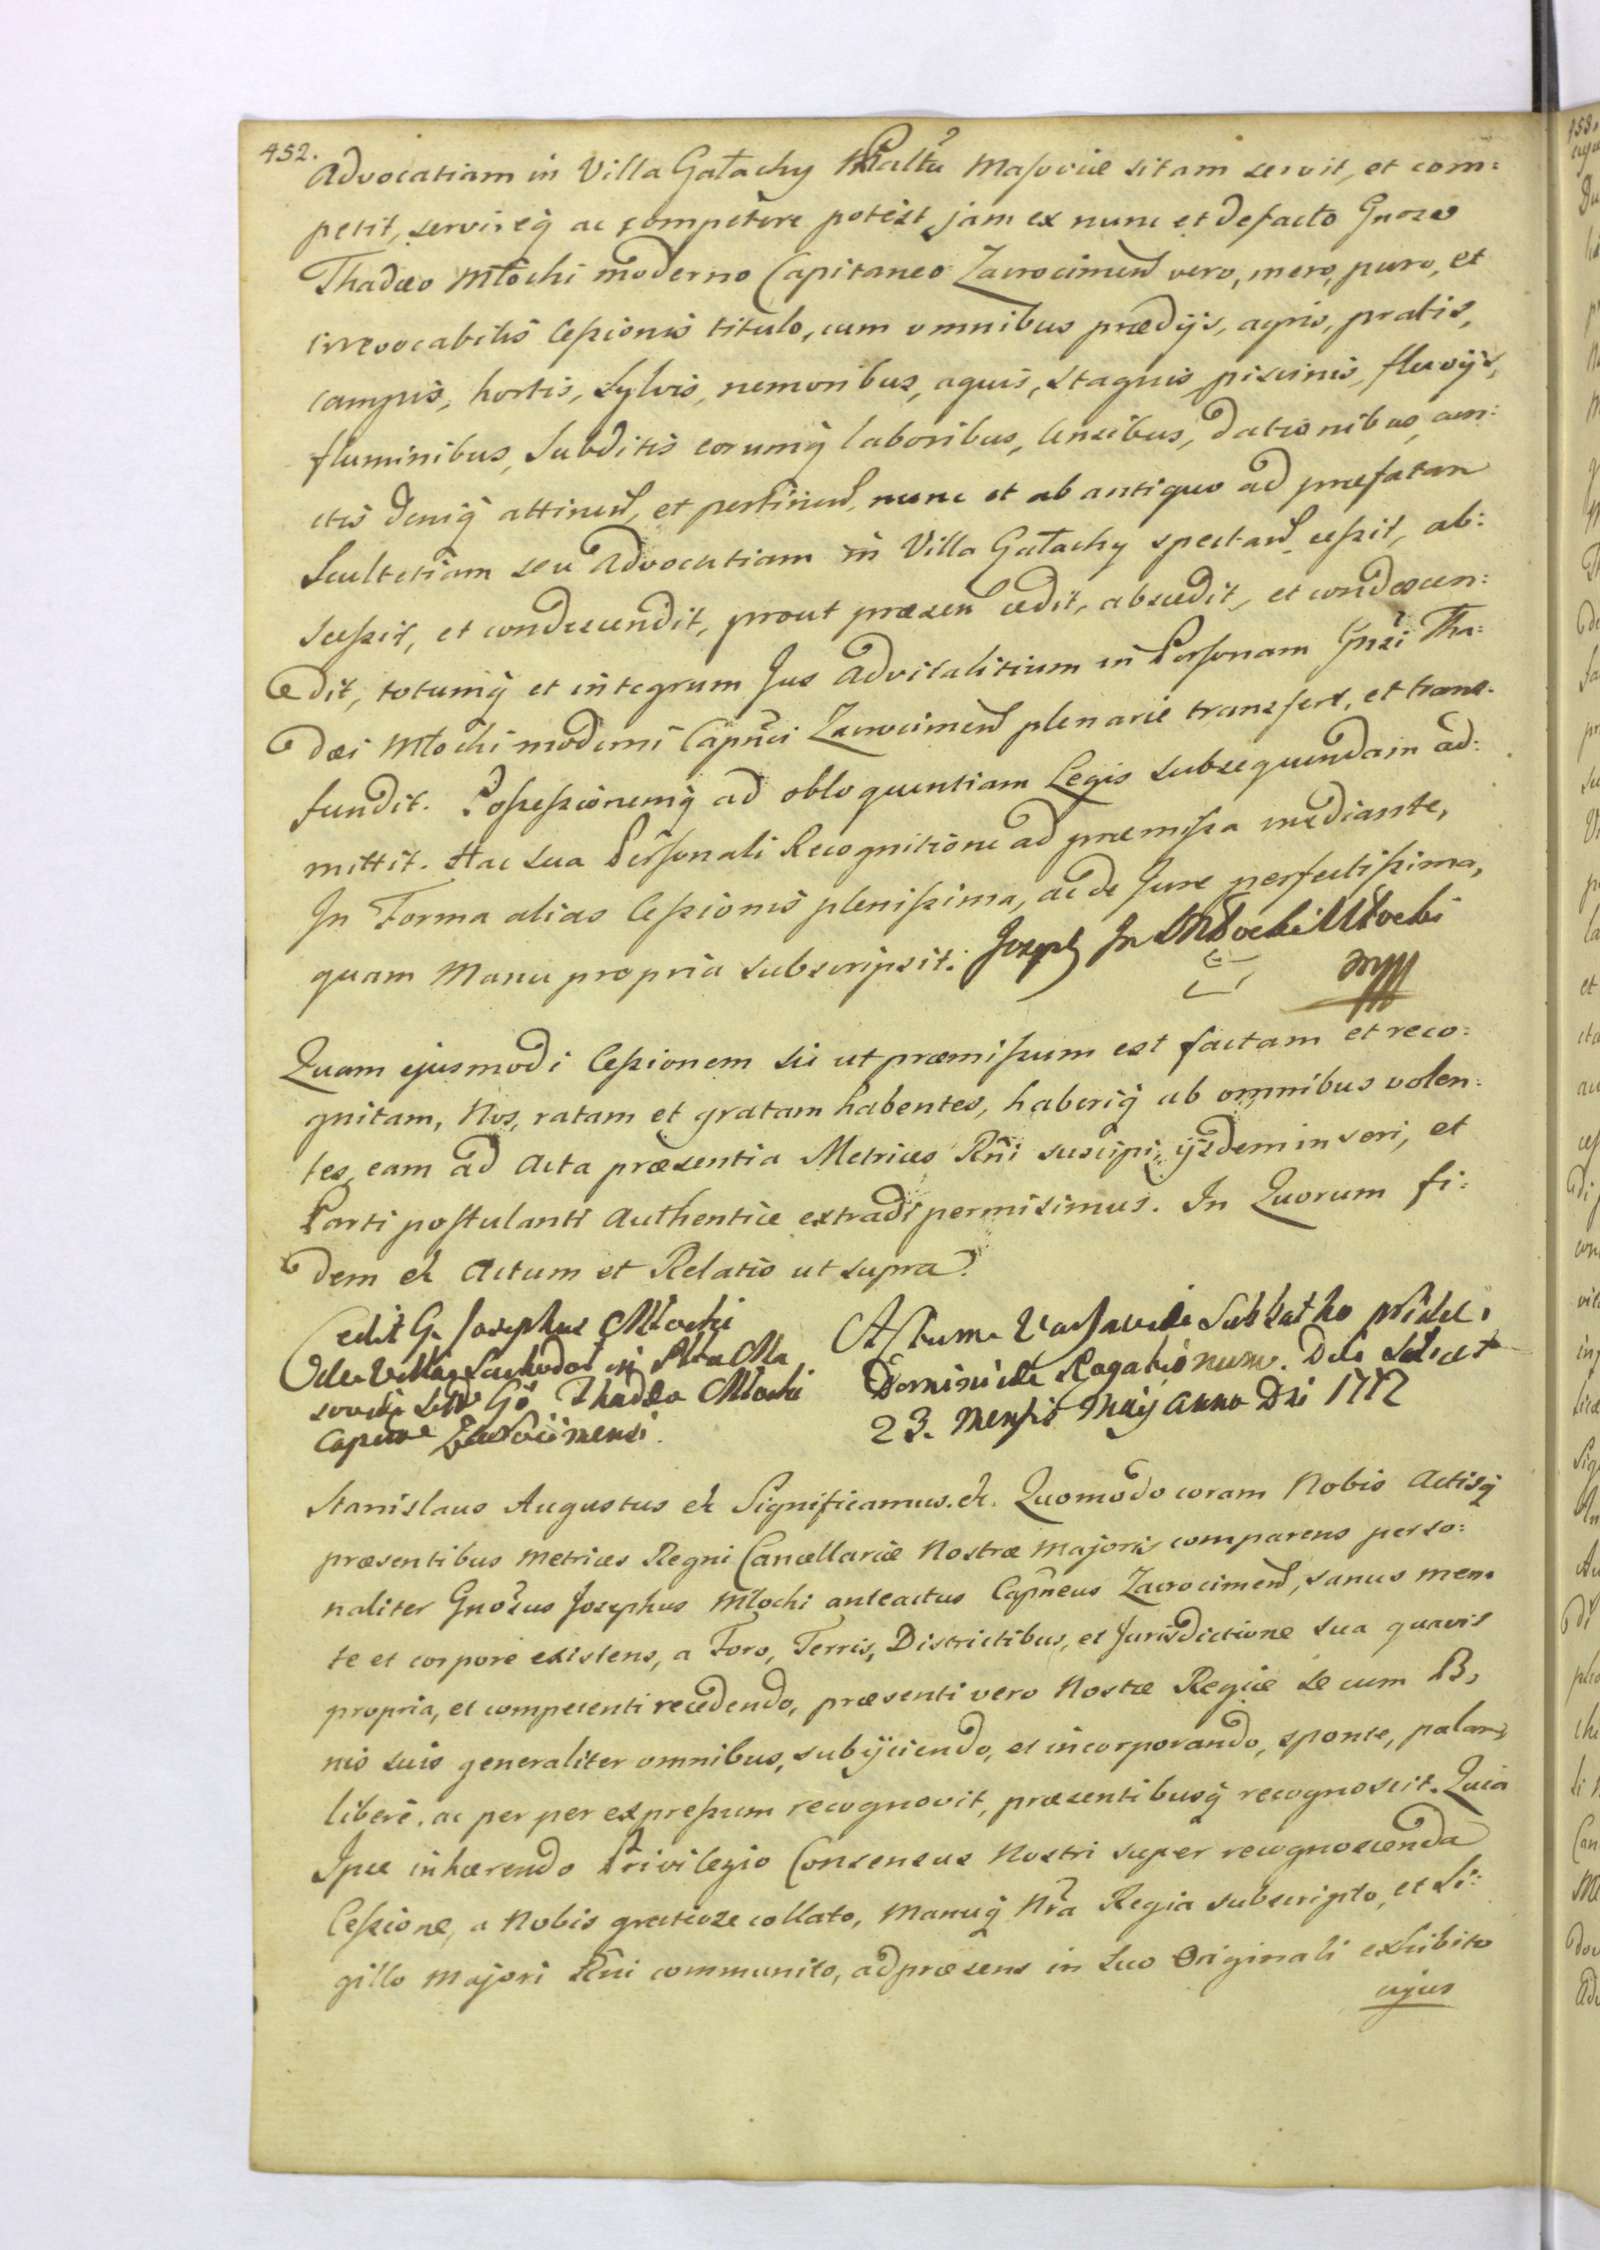 452.
Advocatiam in Villa Gałachy Plattu Masoviæ sitam servit, et com:
petit, servireq̃ ac competere potest jam ex nunc et defacto Gnoso
Thadæo Młocki moderno Capitaneo Zacrocimen̄ vero, mero, puro, et
irrevocabilis Cessionis titulo, cum omnibus prædijs, agris, pratis,
campis, hortis, sylvis, nemoribus, aquis, stagnis piscinis, fluvijs,
fluminibus, Subditis eorumq̃ laboribus, Censibus, dationibus, cun:
ctis deniq̃ attinen̄, et pertinen̄, nunc et ab antiquo ad præfatam
Scultetiam seu Advocatiam in Villa Gałachy spectan̄ cessit, ab:
scessit, et condescendit, prout præsen̄ cedit, abscedit, et condescen:
dit, totumq̃ et integrum Jus Advitalitium in Personam Gnsi Tha:
dæi Młocki moderni Capnei Zacrocimen̄ plenarie transfert, et trans:
fundit. Possessionemq̃ ad obloquentiam Legis subsequendam ad:
mittit. Hac sua Personali Recognitione ad præmissa mediante,
In Forma alias Cessionis plenissima, ac de Jure perfectissima,
quam Manu propria subscripsit. Jozeph Jn Młocki Młocki
Quam ejusmodi Cessionem sic ut præmissum est factam et reco:
gnitam, Nos, ratam et gratam habentes, haberiq̃ ab omnibus volen:
tes, eam ad Acta præsentia Metrices Rñi suscipi, ijsdem inseri, et
Parti postulanti Authentice extradi permisimus. In Quorum fi:
dem et Actum et Relatio ut supra.
Cedit G. Josephus Młocki
in Plta Ma
soviæ Gso Thadeo Młocki
Capneo Zacrocimensi.
Actum Varsaviæ Sabbatho pridie
Dominicæ Rogationum. Die scilicet
23. Mensis Maij Anno Dni 1772
Stanislaus Augustus et Significamus. et. Quomodo coram Nobis Actisq̃
præsentibus Metrices Regni Cancellariæ Nostræ Majoris comparens perso:
naliter Gnosus Josephus Młocki anteactus Capneus Zacrocimen̄, sanus men:
te et corpore existens, a Foro, Terris, Districtibus, et Jurisdictione sua quavis
propria, et competenti recedendo, præsenti vero Nostræ Regiæ se cum B,
nis suis generaliter omnibus, subijciendo, et incorporando, sponte, palam,
libere, ac per per expressum recognovit, præsentibusq̃ recognoscit. Quia
Ipse inhærendo Privilegio Consensus Nostri super recognoscenda
Cessione, a Nobis gratiose collato, Manuq̃ Nra Regia subscripto, et Si:
gillo Majori Rñi communito, ad præsens in suo Originali exhibito
cujus